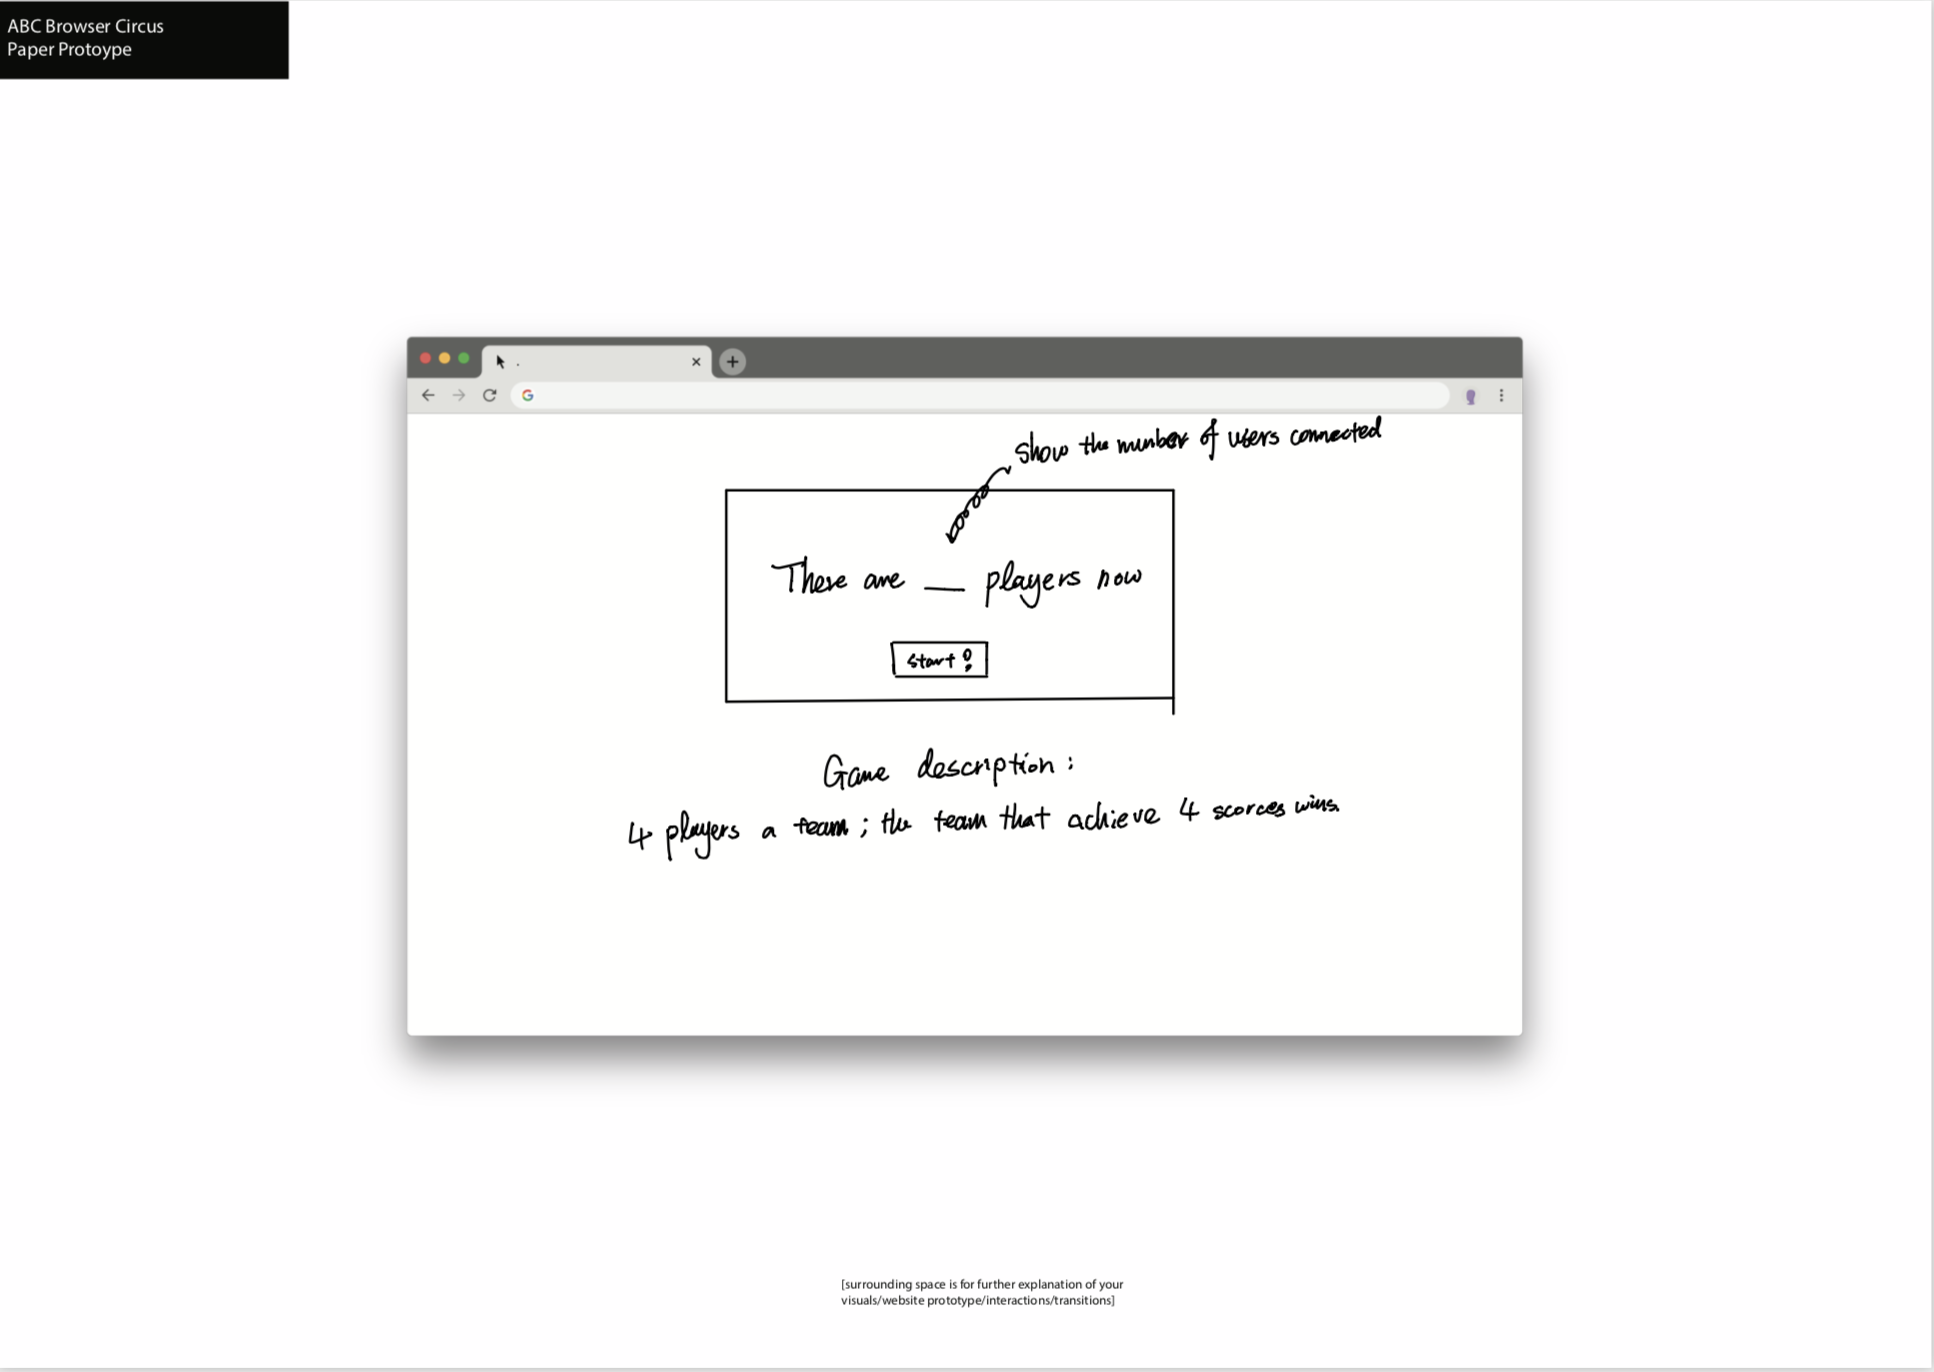 ABC Browser Circus
Paper Protoype
show the number of users connected
There are __ players now
start!
Game description:
4 players a team; the team that achieve 4 scorces wins.
[surrounding space is for further explanation of your
visuals/website prototype/interactions/transitions]